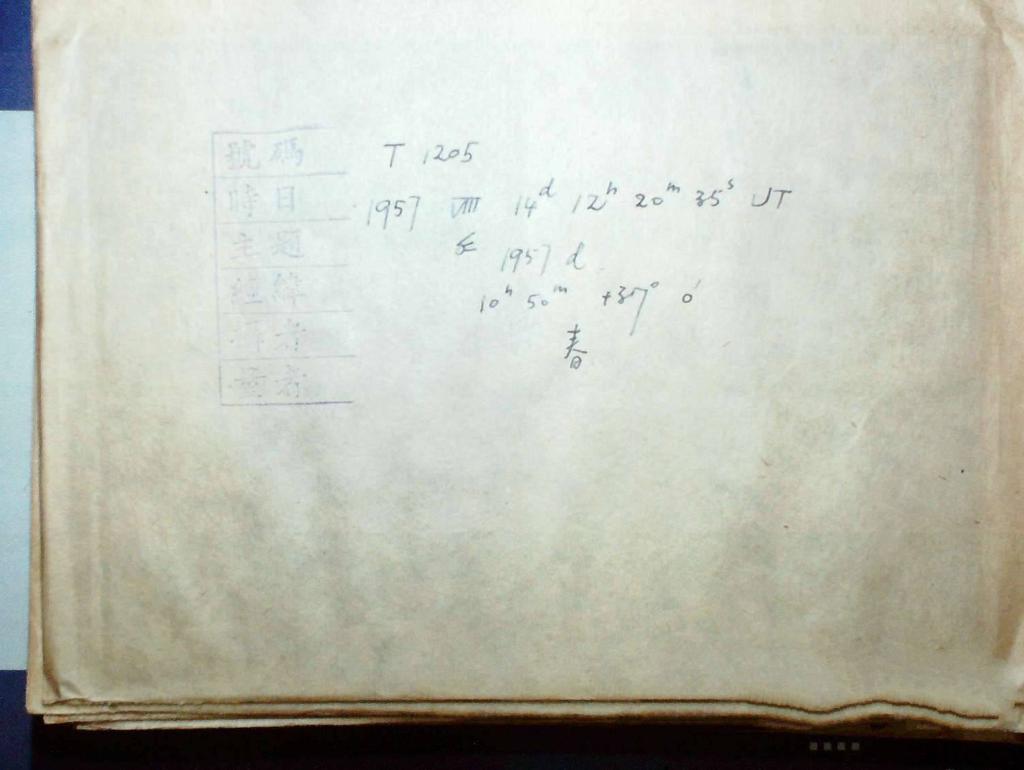 號碼 T 1205
時日 1957 VIII 14ᵈ 12ʰ 20ᵐ 35ˢ UT
主題 1957 d
經緯 10ʰ 50ᵐ +37° 0′
者 春
者